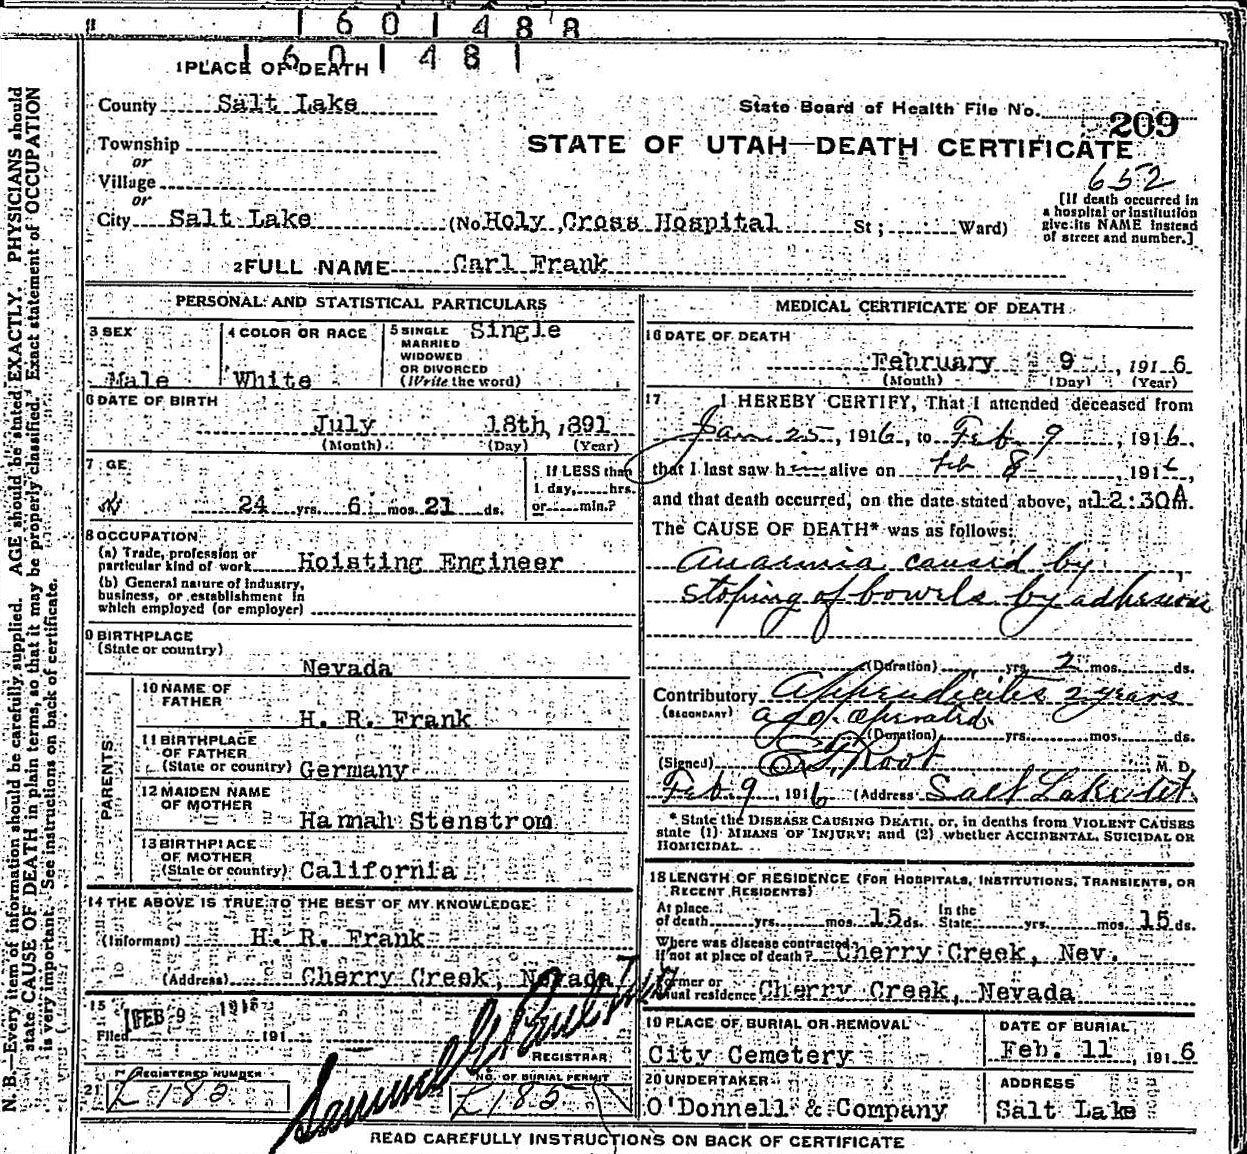 1601488
1601481
1 PLACE OF DEATH
County Salt Lake
State Board of Health File No. 209
Township
STATE OF UTAH—DEATH CERTIFICATE
or
652
Village
or
[If death occurred in
a hospital or institution
give its NAME instead
of street and number.]
City Salt Lake (No. Holy Cross Hospital St; Ward)
2 FULL NAME Carl Frank
PERSONAL AND STATISTICAL PARTICULARS
3 SEX
Male
4 COLOR OR RACE
White
5 SINGLE
MARRIED
WIDOWED
OR DIVORCED
(Write the word)
Single
6 DATE OF BIRTH
July 18th, 1891
(Month) (Day) (Year)
7 GE
24 yrs. 6 mos. 21 ds.
If LESS than
1 day, hrs.
or min.?
8 OCCUPATION
(a) Trade, profession or
particular kind of work Hoisting Engineer
(b) General nature of industry,
business, or establishment in
which employed (or employer)
9 BIRTHPLACE
(State or country)
Nevada
PARENTS
10 NAME OF
FATHER
H. R. Frank
11 BIRTHPLACE
OF FATHER
(State or country) Germany
12 MAIDEN NAME
OF MOTHER
Hannah Stenstrom
13 BIRTHPLACE
OF MOTHER
(State or country) California
14 THE ABOVE IS TRUE TO THE BEST OF MY KNOWLEDGE
(Informant) H. R. Frank
(Address) Cherry Creek, Nevada
15
Filed FEB 9 1916 191
REGISTRAR
21 REGISTERED NUMBER
L 182
22 NO. OF BURIAL PERMIT
L 182
MEDICAL CERTIFICATE OF DEATH
16 DATE OF DEATH
February 9, 1916
(Month) (Day) (Year)
17 I HEREBY CERTIFY, That I attended deceased from
Jan 25, 1916, to Feb 9, 1916,
that I last saw h alive on Feb 8, 1916,
and that death occurred, on the date stated above, at 12:30A m.
The CAUSE OF DEATH* was as follows:
Anaemia caused by
stoping of bowels by adhesions
(Duration) yrs. 2 mos. ds.
Contributory Appendicites 2 years
(SECONDARY) ago. Operated.
(Duration) yrs. mos. ds.
(Signed) Root M. D.
Feb. 9, 1916 (Address) Salt Lake
* State the DISEASE CAUSING DEATH, or, in deaths from VIOLENT CAUSES
state (1) MEANS OF INJURY; and (2) whether ACCIDENTAL, SUICIDAL OR
HOMICIDAL.
18 LENGTH OF RESIDENCE (FOR HOSPITALS, INSTITUTIONS, TRANSIENTS, OR
RECENT RESIDENTS)
At place
of death yrs. mos. 15 ds. In the State yrs. mos. 15 ds.
Where was disease contracted,
if not at place of death? Cherry Creek, Nev.
Former or
usual residence Cherry Creek, Nevada
19 PLACE OF BURIAL OR REMOVAL
City Cemetery
DATE OF BURIAL
Feb. 11 1916
20 UNDERTAKER
O'Donnell & Company
ADDRESS
Salt Lake
READ CAREFULLY INSTRUCTIONS ON BACK OF CERTIFICATE
N. B.—Every item of information should be carefully supplied. AGE should be stated EXACTLY. PHYSICIANS should
state CAUSE OF DEATH in plain terms, so that it may be properly classified. Exact statement of OCCUPATION
is very important. See instructions on back of certificate.